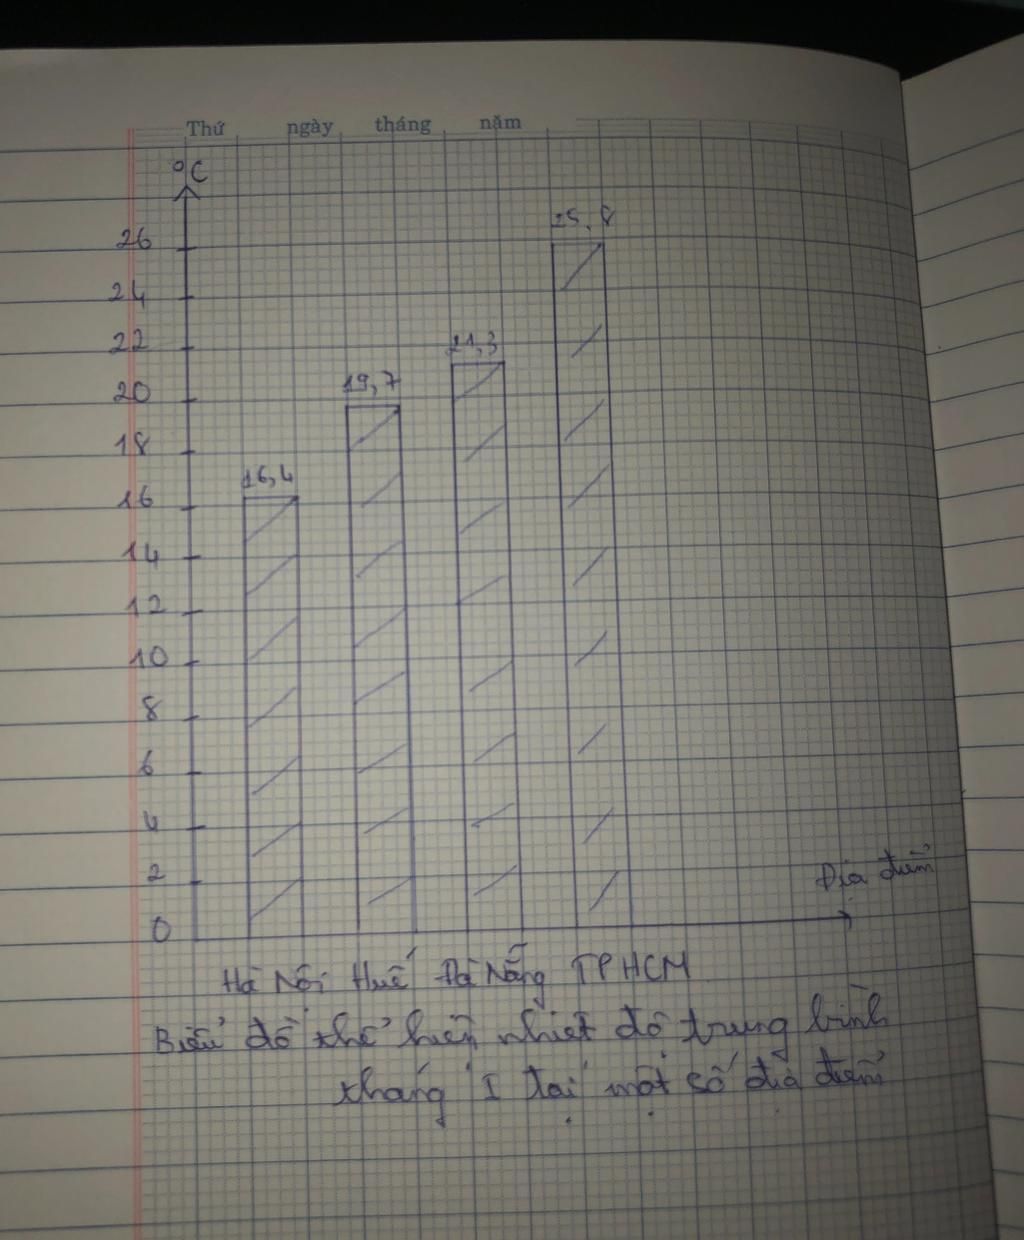 Thứ ngày tháng năm
°C
25,8
26
24
21,3
22
19,7
20
18
16,4
16
14
12
10
8
6
4
2
Địa điểm
0
Hà Nội Huế Đà Nẵng TPHCM
Biểu đồ thể hiện nhiệt độ trung bình
tháng I tại một số địa điểm